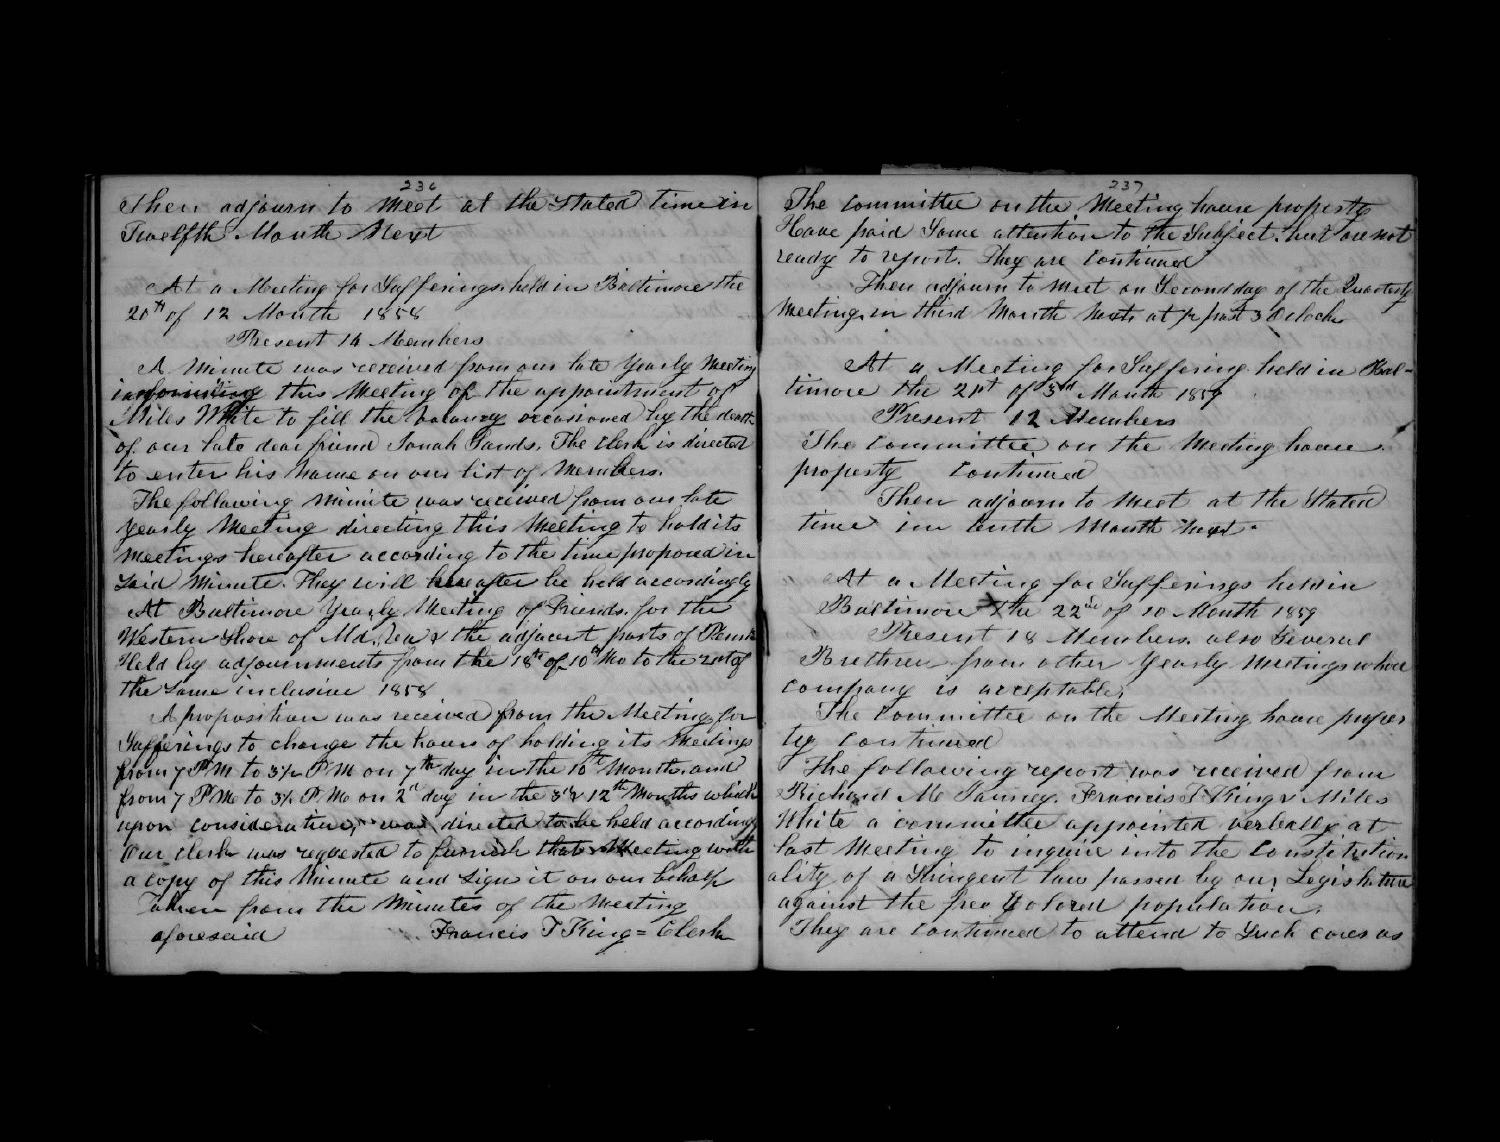 236
Then adjourn to meet at the Stated time in
Twelfth Month Next
At a Meeting for Sufferings held in Baltimore the
20th of 12 Month 1858
Present 14 Members
A Minute was received from our late Yearly Meeting
informing this Meeting of the appointment of
Miles White to fill the vacancy occasioned by the death
of our late dear friend Jonah Sands. The Clerk is directed
to enter his name on our list of Members.
The following Minute was received from our late
Yearly Meeting directing this Meeting to hold its
Meetings hereafter according to the time proposed in
said Minute. They will hereafter be held accordingly
At Baltimore Yearly Meeting of Friends for the
Western Shore of Md. Va & the adjacent parts of Penna
Held by adjournments from the 18th of 10th Mo to the 21st of
the Same inclusive 1858
A proposition was received from the Meeting for
Sufferings to change the hours of holding its Meetings
from 7 P M to 3½ P M on 7th day in the 10th Month and
from 7 P Mo to 3½ P. Mo on 2d day in the 3d & 12th Months which
upon consideration, was directed to be held accordingly
Our clerk was requested to furnish that Meeting with
a copy of this Minute and sign it on our behalf
Taken from the Minutes of the Meeting
aforesaid Francis T King = Clerk
237
The Committee on the Meeting house property
Have paid Some attention to the Subject. but are not
ready to report. They are Continued
Then adjourn to meet on Second day of the Quarterly
Meeting in third Month next at ½ past 3 O clock
At a Meeting for Suffering held in Bal-
timore the 21st of 3rd Month 1859
Present 12 Members
The Committee on the Meeting house
property Continued
Then adjourn to Meet at the Stated
time in tenth Month next.
At a Meeting for Sufferings held in
Baltimore the 22nd of 10 Month 1859
Present 18 Members. also Several
Brethren from other Yearly Meetings whose
company is acceptable,
The Committee on the Meeting house proper
ty Continued
The following report was received from
Richard M Janney. Francis T King & Miles
White a committee appointed verbally at
last Meeting to inquire into the Constitution
ality of a Stringent law passed by our Legislature
against the free Colored population.
They are Continued to attend to Such cases as